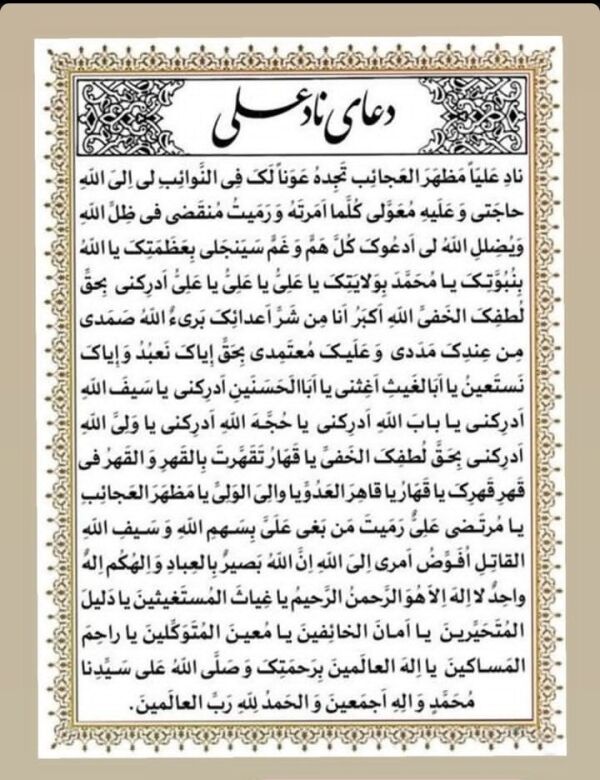 دعای ناد علی
نادِ عَلیاً مَظهَرَ العَجائِب تَجِدهُ عَوناً لَکَ فِی النَّوائِب لی اِلیَ اللهِ
حاجَتی وَ عَلَیهِ مُعَوَّلی کُلَّما اَمَرتَهُ وَ رَمَیتُ مُنقَضی فی ظِلِّ اللهِ
وَیُضلِلِ اللهُ لی اَدعُوکَ کُلَّ هَمٍّ وَ غَمٍّ سَیَنجَلی بِعَظَمَتِکَ یا اللهُ
بِنُبُوَّتِکَ یا مُحَمَّدَ بِوِلایَتِکَ یا عَلِیُّ یا عَلِیُّ یا عَلِیُّ اَدرِکنی بِحَقِّ
لُطفِکَ الخَفیِّ اللهِ اَکبَرُ اَنَا مِن شَرِّ اَعدائِکَ بَریءٌ اللهُ صَمَدی
مِن عِندِکَ مَدَدی وَ عَلَیکَ مُعتَمِدی بِحَقِّ اِیاکَ نَعبُدُ وَ اِیاکَ
نَستَعینُ یا اَبالغَیثِ اَغِثنی یا اَبَاالحَسَنَینِ اَدرِکنی یا سَیفَ اللهِ
اَدرِکنی یا بابَ اللهِ اَدرِکنی یا حُجَّهَ اللهِ اَدرِکنی یا وَلِیَّ اللهِ
اَدرِکنی بِحَقِّ لُطفِکَ الخَفیِّ یا قَهّارُ تَقَهَّرتَ بِالقَهرِ وَ القَهرُ فی
قَهرِ قَهرِکَ یا قَهّارُ یا قاهِرَ العَدُوِّ یا والِیَ الوَلِیِّ یا مَظهَرَ العَجائِبِ
یا مُرتَضی عَلِیُّ رَمَیتَ مَن بَغی عَلَیَّ بِسَهمِ اللهِ وَ سَیفِ اللهِ
القاتِلِ اُفَوِّضُ اَمری اِلیَ اللهِ اِنَّ اللهَ بَصیرٌ بِالعِبادِ وَ اِلهُکُم اِلهٌ
واحِدٌ لا اِلهَ اِلاّ هُوَ الرَّحمنُ الرَّحیمُ یا غِیاثَ المُستَغیثینَ یا دَلیلَ
المُتَحَیِّرینَ یا اَمانَ الخائِفینَ یا مُعینَ المُتَوَکِّلینَ یا راحِمَ
المَساکینَ یا اِلهَ العالَمینَ بِرَحمَتِکَ وَ صَلَّی اللهُ عَلی سَیِّدِنا
مُحَمَّدٍ وَ الِهِ اَجمَعینَ وَ الحَمدُ لِلّهِ رَبِّ العالَمینَ.